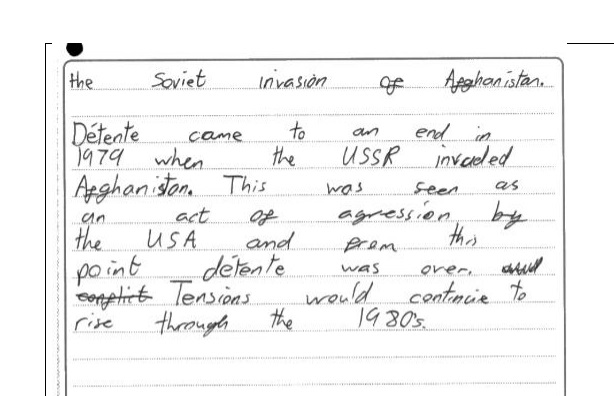 the Soviet invasion of Afghanistan.
Détente came to an end in
1979 when the USSR invaded
Afghanistan. This was seen as
an act of agression by
the USA and from this
point détente was over.
conflict Tensions would continue to
rise through the 1980's.